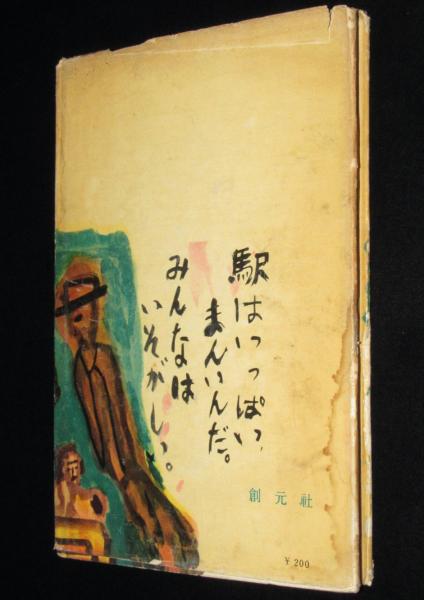 駅はいっぱい、
まんいんだ。
みんなは
いそがしい。
創元社
￥200